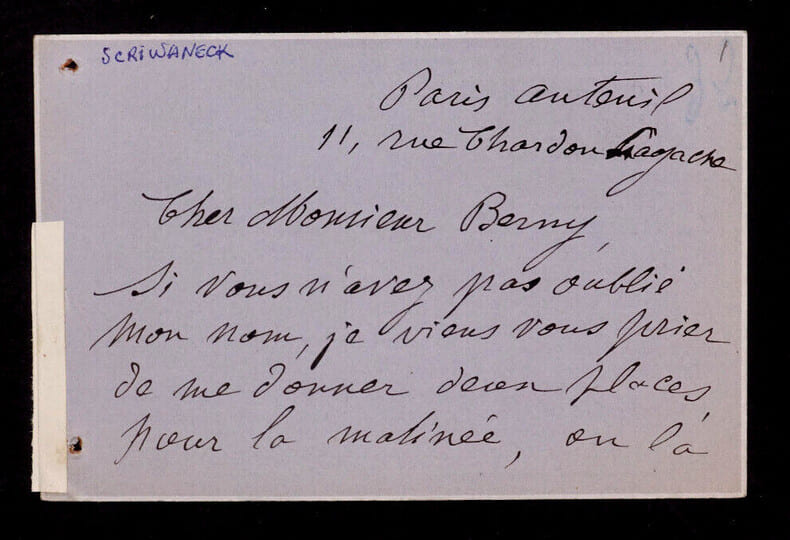 SCRIWANECK
1
Paris Auteuil
11, rue Chardon Lagache
Cher Monsieur Berny,
Si vous n'avez pas oublié
mon nom, je viens vous prier
de me donner deux places,
pour la matinée, ou la